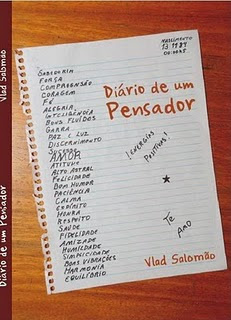 Vlad Salomão
Diário de um Pensador
NASCIMENTO
SABEDORIA
FORÇA
COMPREENSÃO
CORAGEM
FÉ
ALEGRIA
INTELIGÊNCIA
BONS FLUÍDOS
GARRA
PAZ E LUZ
DISCERNIMENTO
SUCESSO
AMOR
ATITUDE
ALTO ASTRAL
FELICIDADE
BOM HUMOR
PACIÊNCIA
CALMA
ESPÍRITO
HONRA
RESPEITO
SAÚDE
FIDELIDADE
AMIZADE
HUMILDADE
SIMPLICIDADE
BOAS VIBRAÇÕES
HARMONIA
EQUILÍBRIO
Diário de um
Pensador
¡ENERGIAS
POSITIVAS!
TE
AMO
Vlad Salomão